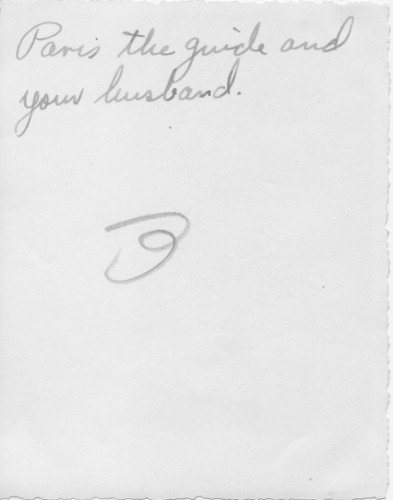 Paris the guide and
your husband.
3